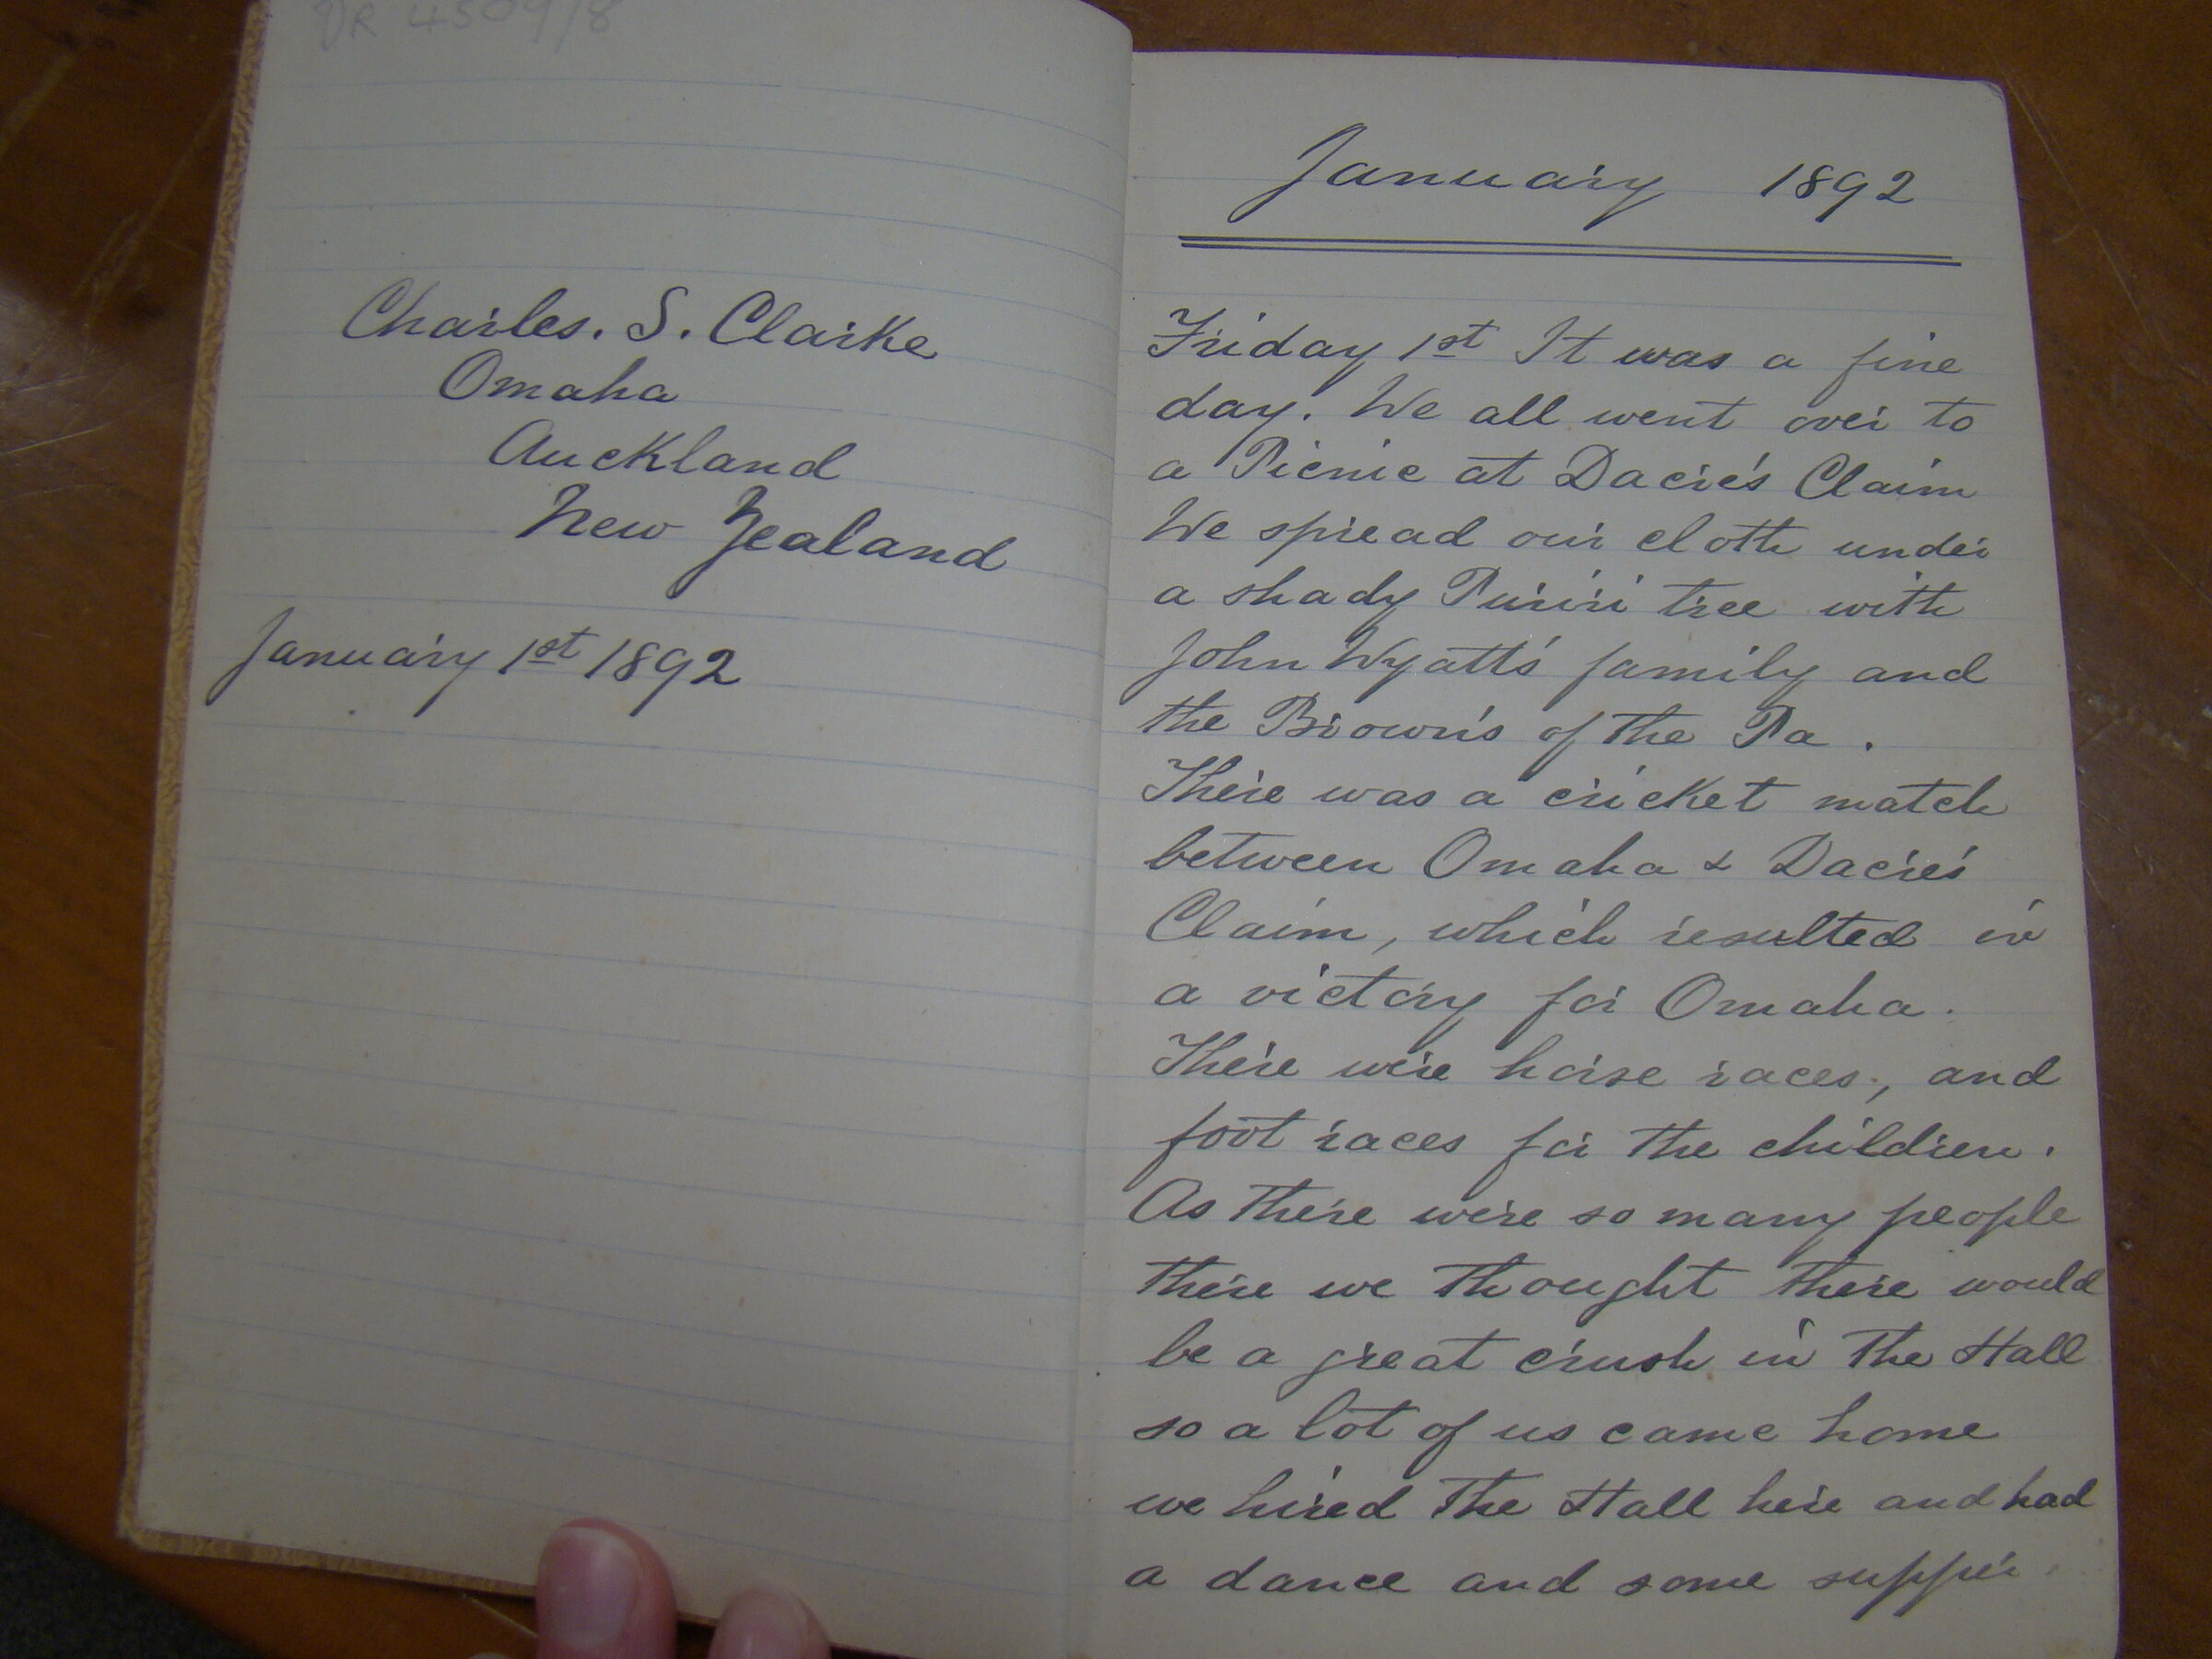 VR 4509/8
Charles. S. Clarke
Omaha
Auckland
New Zealand
January 1st 1892
January 1892
Friday 1st It was a fine
day. We all went over to
a Picnic at Dacre's Claim
We spread our cloth under
a shady Puriri tree with
John Wyatt's family and
the Brown's of the Pa.
There was a cricket match
between Omaha & Dacre's
Claim, which resulted in
a victory for Omaha.
There were horse races, and
foot races for the children.
As there were so many people
there we thought there would
be a great crush in the Hall
so a lot of us came home
we hired the Hall here and had
a dance and some supper.